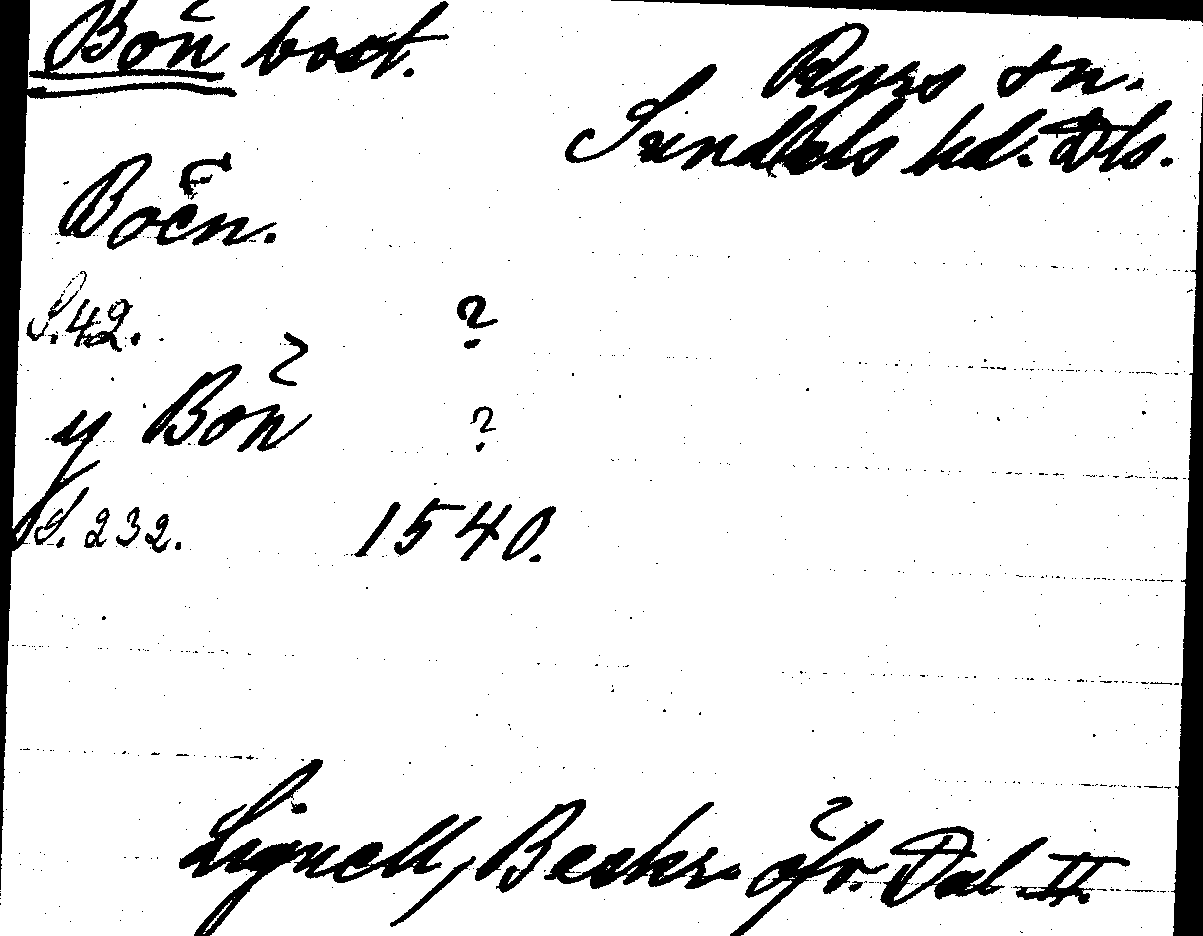 Bön bost.
Ryrs sn.
Sundals hd. Dls.
Böen.
S. 42. ?
y Bön ?
S. 232. 1540.
Lignell, Beskr. öfv. Dal II.